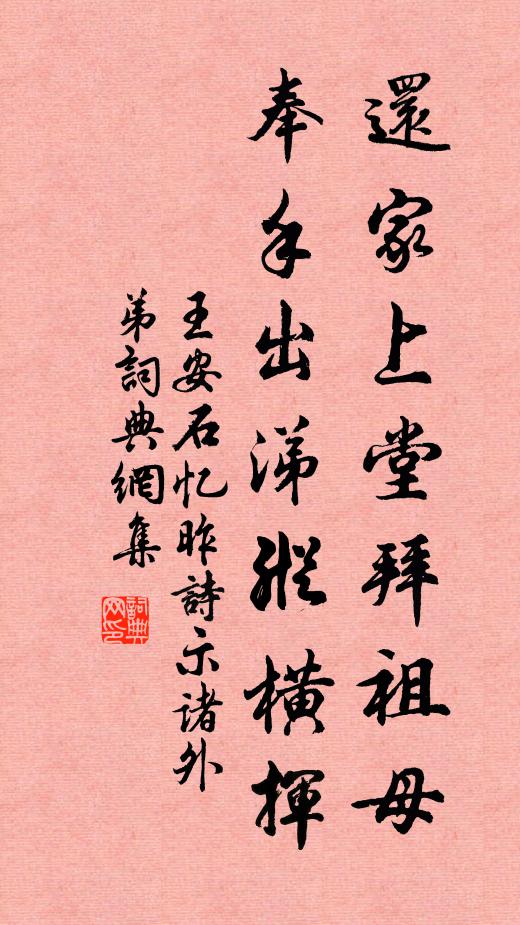 還家上堂拜祖母
奉手出涕縱橫揮
王安石忆昨詩示诸外
弟詞典網集
詞典網印